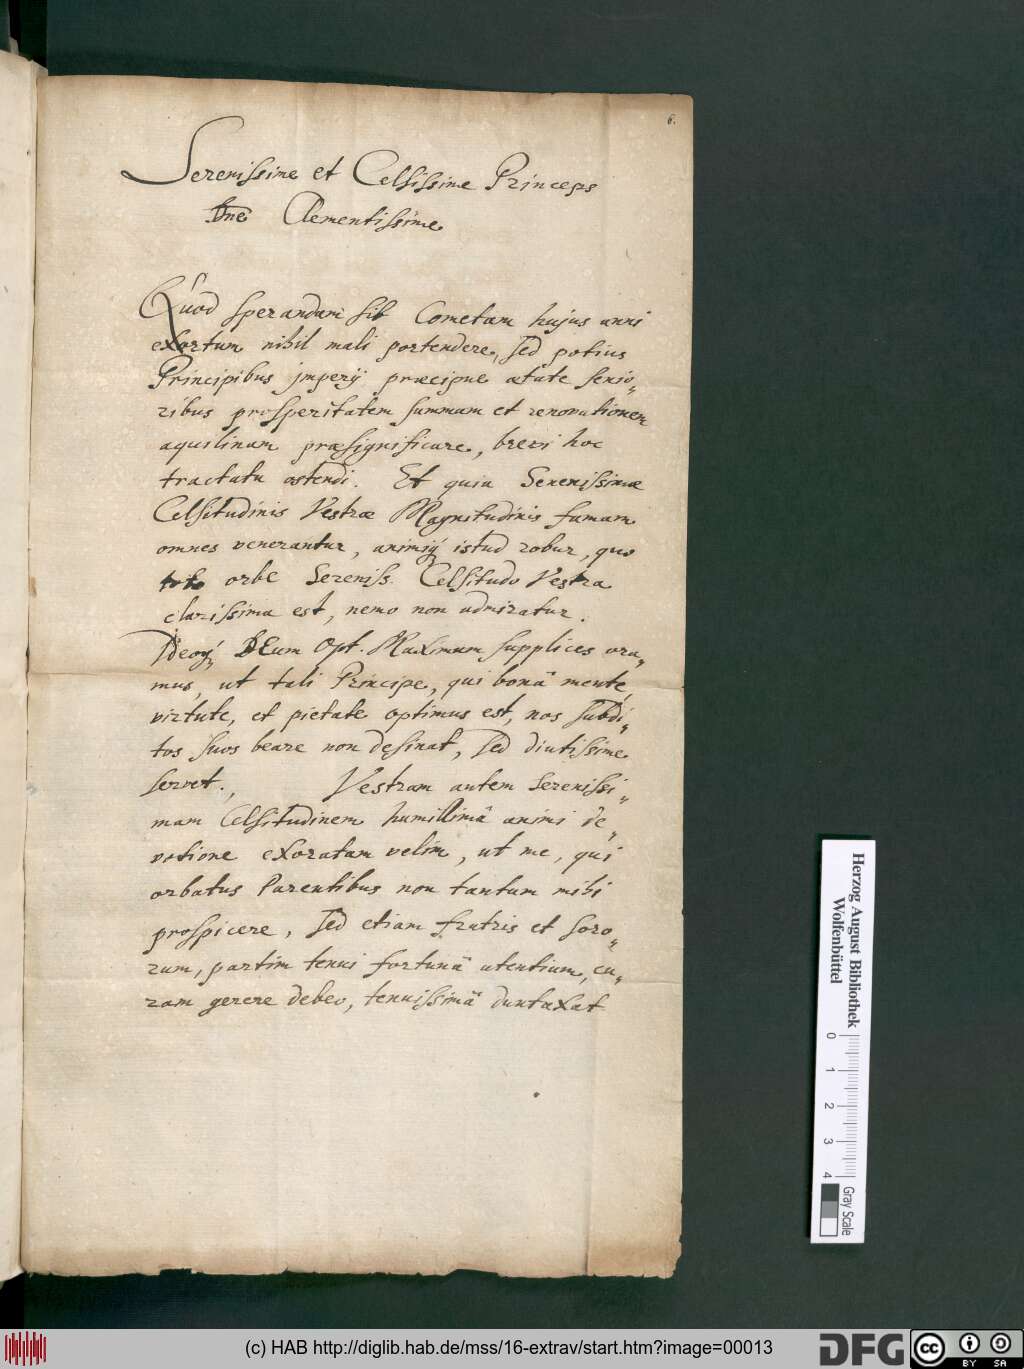 6.
Serenissime et Celsissime Princeps
Dne Clementissime
Quod sperandam sit Cometam hujus anni
exortum nihil mali portendere, sed potius
Principibus jmperij præcipue ætate senio„
ribus prosperitatem summam et renovationem
aquilinam præsignificare, brevi hoc
tractatu ostendi. Et quia Serenissimæ
Celsitudinis Vestræ Magnitudinis famam
omnes venerantur, animiq; istud robur, quo
toto orbe Sereniss. Celsitudo Vestra
clarissima est, nemo non admiratur.
Ideoq; DEum Opt. Maximum supplices ora„
mus, ut tali Principe, qui bonâ mente,
virtute, et pietate optimus est, nos subdi„
tos suos beare non desinat, sed diutissime
servet., Vestram autem Serenissi„
mam Celsitudinem humillimâ animi de„
votione exoratam velim, ut me, qui
orbatus Parentibus non tantum mihi
prospicere, sed etiam fratris et soro„
rum, partim tenui fortunâ utentium, cu„
ram gerere debeo, tenuissimâ duntaxat
Herzog August Bibliothek
Wolfenbüttel
0 1 2 3 4
Gray Scale
(c) HAB http://diglib.hab.de/mss/16-extrav/start.htm?image=00013
DFG
cc BY SA